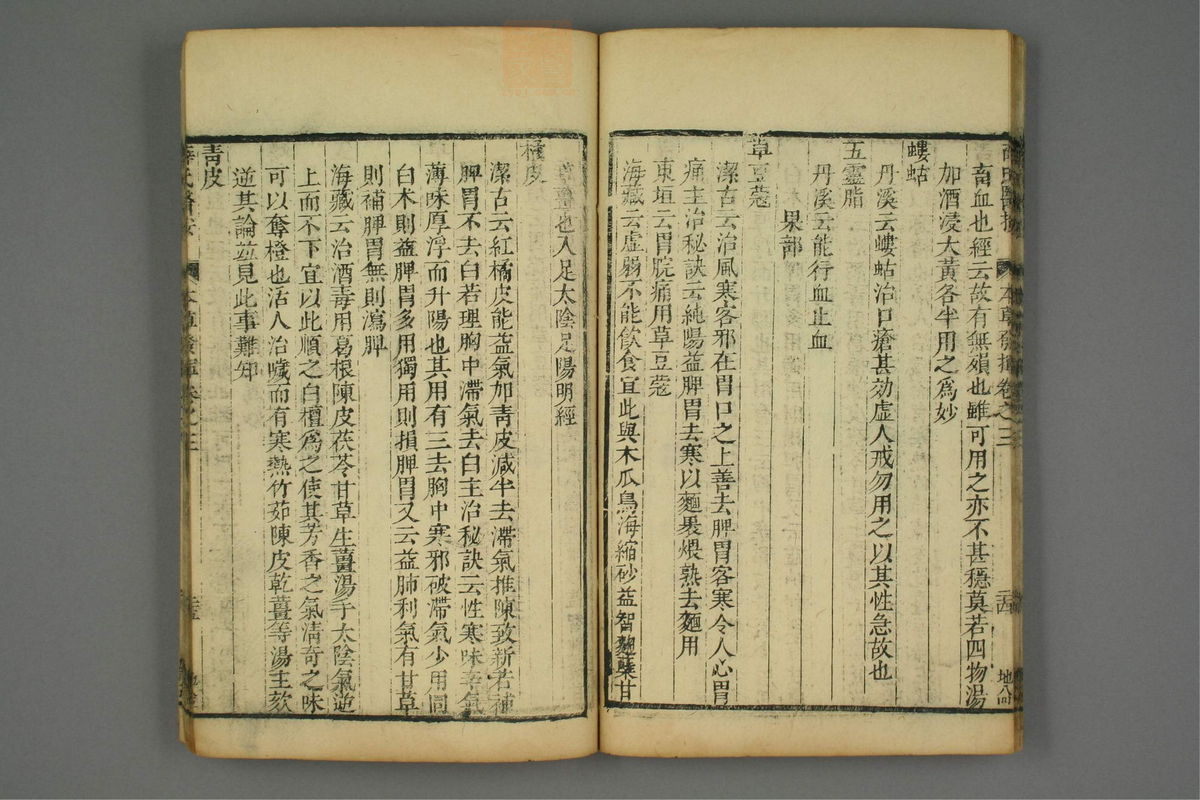 本草發揮卷之三
畜血也經云故有無殞也雖可用之亦不甚穩莫若四物湯
加酒浸大黃各半用之爲妙
螻蛄
丹溪云螻蛄治口瘡甚効虛人戒勿用之以其性急故也
五靈脂
丹溪云能行血止血
果部
草豆蔻
潔古云治風寒客邪在胃口之上善去脾胃客寒令人心胃
痛主治秘訣云純陽益脾胃去寒以麵裹煨熟去麵用
東垣云胃脘痛用草豆蔻
海藏云虛弱不能飲食宜此與木瓜烏海縮砂益智麯櫱甘
草薑也入足太陰足陽明經
橘皮
潔古云紅橘皮能益氣加青皮減半去滯氣推陳致新若補
脾胃不去白若理胸中滯氣去白主治秘訣云性寒味辛氣
薄味厚浮而升陽也其用有三去胸中寒邪破滯氣少用同
白木則益脾胃多用獨用則損脾胃又云益肺利氣有甘草
則補脾胃無則瀉脾
海藏云治酒毒用葛根陳皮茯苓甘草生薑湯手太陰氣逆
上而不下宜以此順之白檀爲之使其芳香之氣清奇之味
可以奪橙也活人治噦而有寒熱竹茹陳皮乾薑等湯主欬
逆其論並見此事難知
青皮
本草發揮卷之三